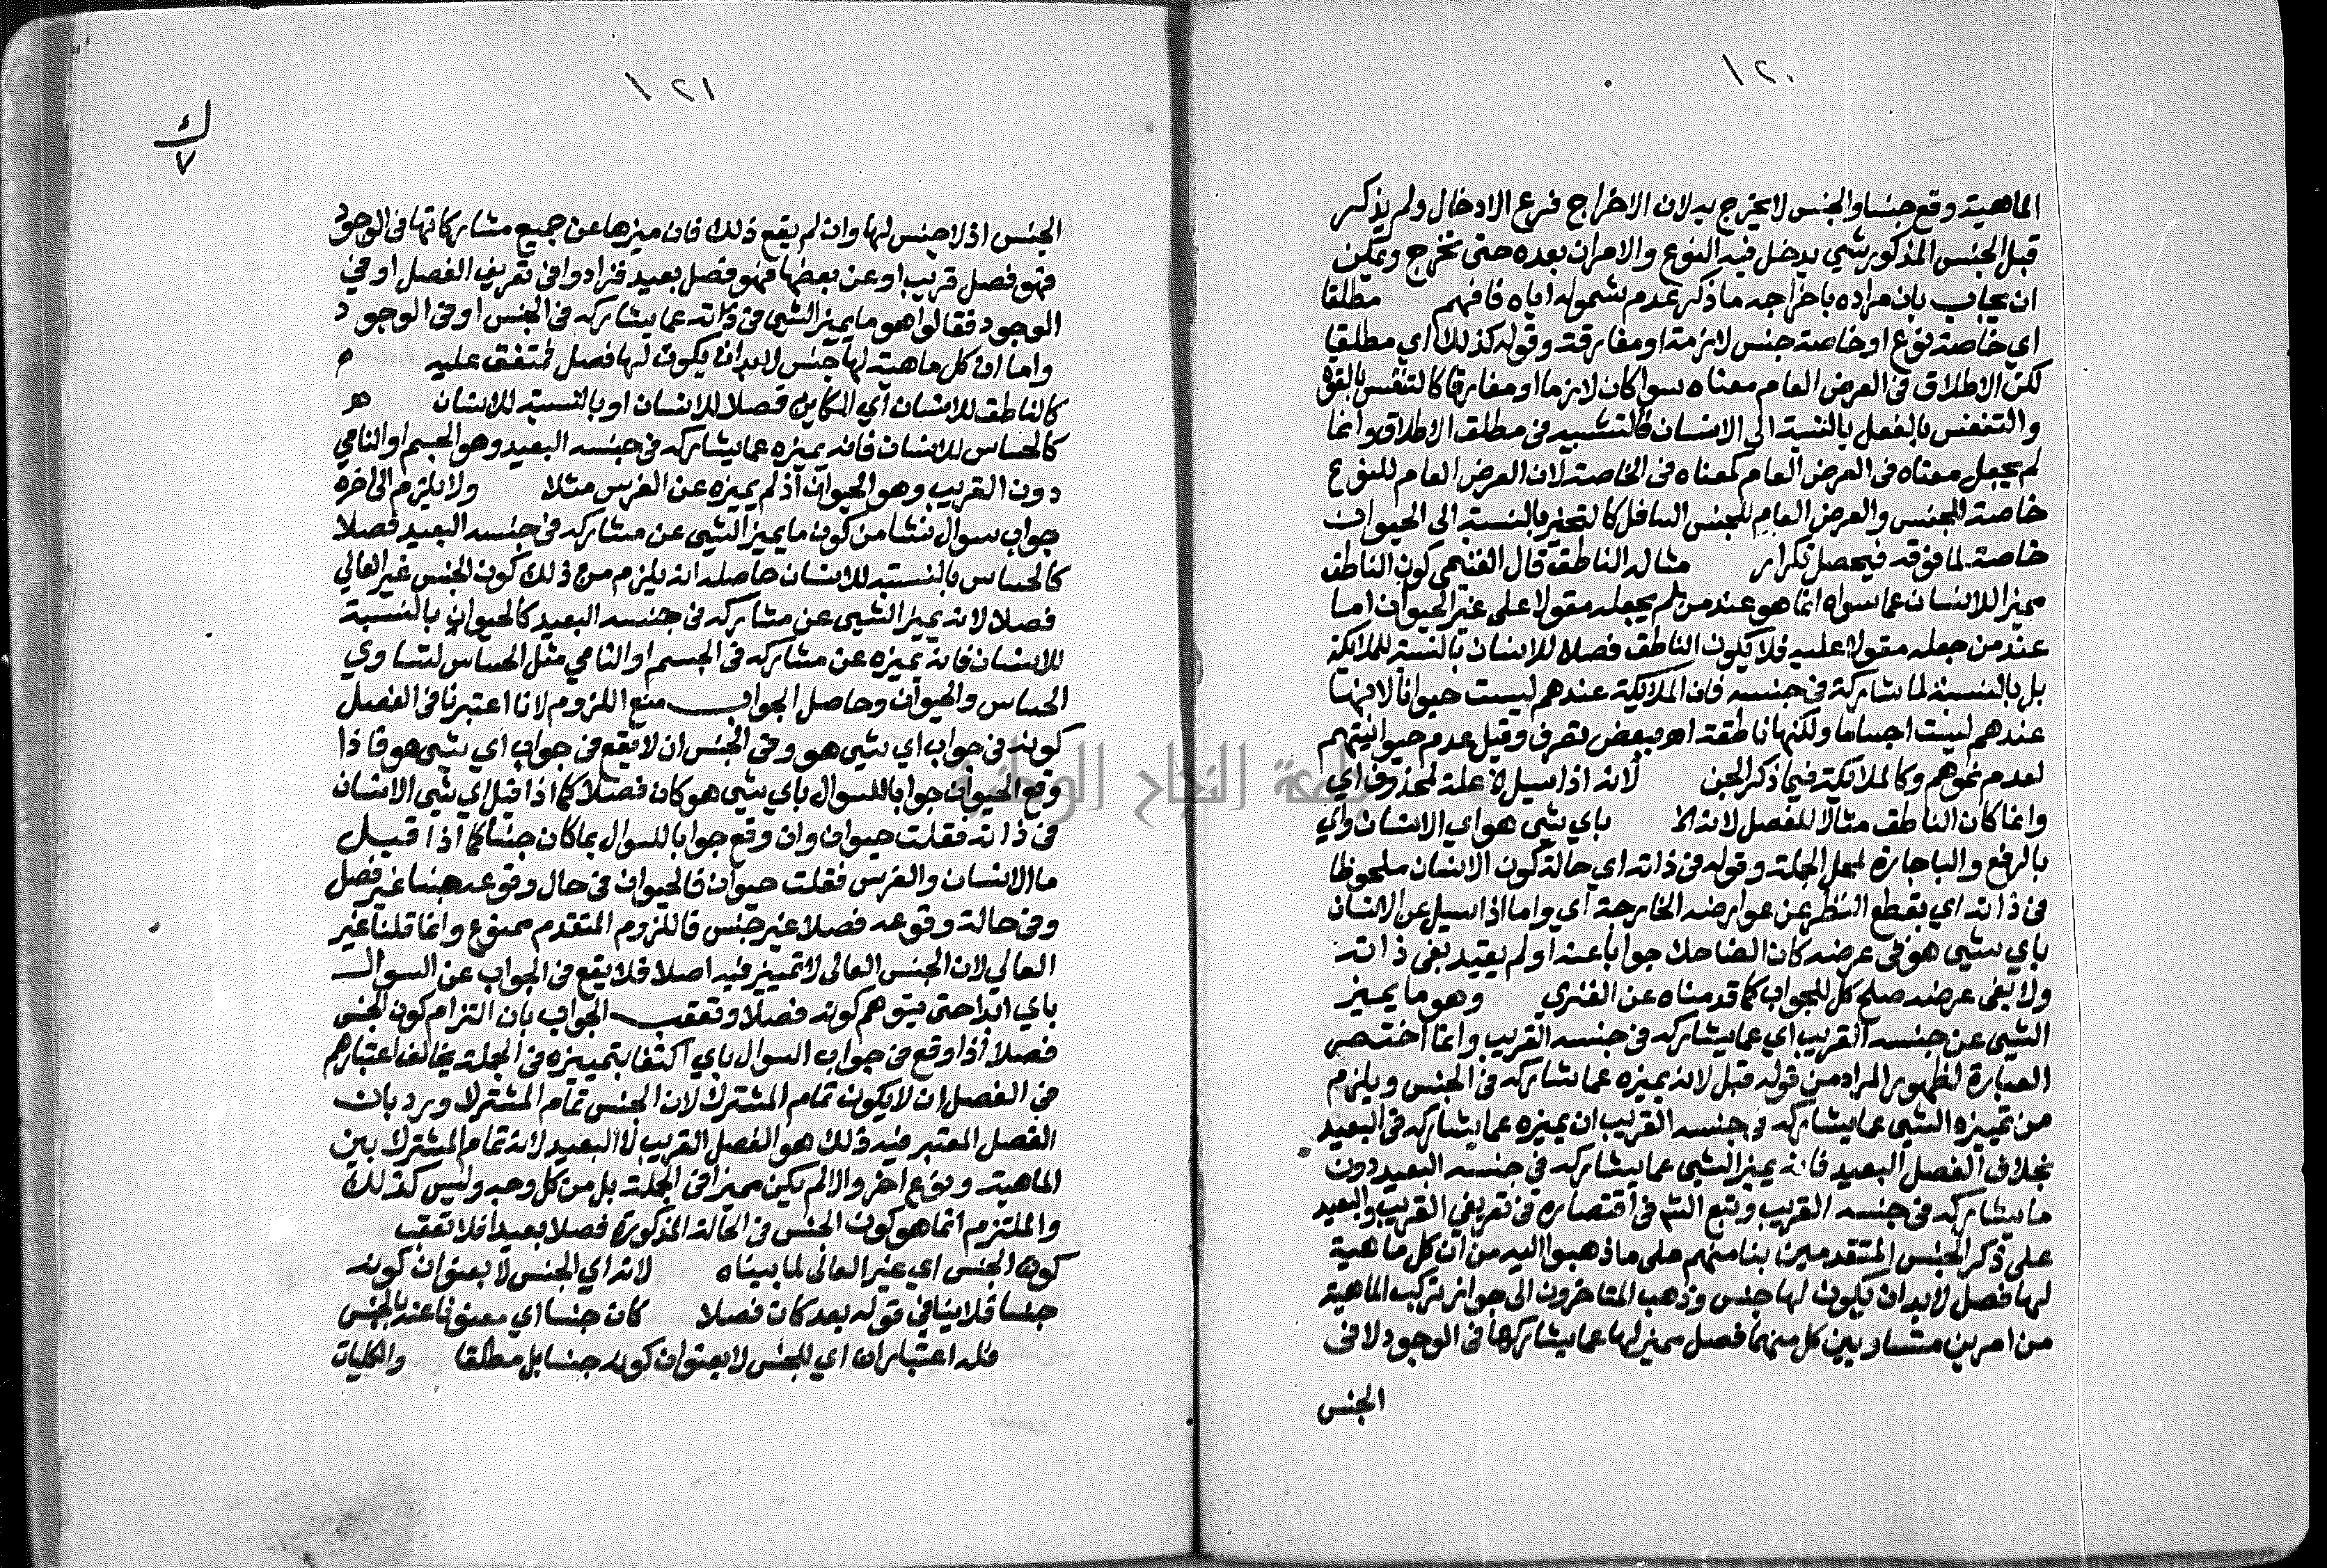 ١٢٠
الماهية وقع جنسا والجنس لا يخرج به لان الاخراج فرع الادخال ولم يذكر
قبل الجنس المذكور شي يدخل فيه النوع والامران بعده حتى تخرج ويمكن
ان يجاب بان مراده باخراجه ما ذكر عدم شموله اياه فافهم مطلقا
اي خاصة نوع او خاصة جنس لازمة او مفارقة وقوله كذلك اي مطلقا
لكن الاطلاق في العرض العام معناه سوا كان لازما او مفارقا كالتنفس بالقوة
والتنفس بالفعل بالنسبة الى الانسان فالتشبيه في مطلق الاطلاق وانما
لم يجعل معناه في العرض العام كمعناه في الخاصة لان العرض العام للنوع
خاصة للجنس والعرض العام للجنس السافل كالتحيز بالنسبة الى الحيوان
خاصة لما فوقه فيحصل تكرار مثاله الناطق قال الغنيمي كون الناطق
مميزا للانسان عما سواه انما هو عند من لم يجعله مقولا على غير الحيوان اما
عند من جعله مقولا عليه فلا يكون الناطق فصلا للانسان بالنسبة للملائكة
بل بالنسبة لما شاركه في جنسه فان الملايكة عندهم ليست حيوانا لانها
عندهم ليست اجساما ولكنها ناطقة اهـ ببعض تصرف وقيل عدم حيوانيتهم
لعدم نموهم وكالملائكة فيما ذكر الجن لانه اذا سيل الخ علة لمحذوف اي
وانما كان الناطق مثالا للفصل لانه الخ باي شي هو اي الانسان واي
بالرفع والبا جارة لمحل الجملة وقوله في ذاته اي حالة كون الانسان ملحوظا
في ذاته اي بقطع النظر عن عوارضه الخارجة اي واما اذا سيل عن الانسان
باي شي هو في عرضه كان الضاحك جوابا عنه او لم يقيد بفي ذاته
ولا بفي عرضه صلح كل للجواب كما قدمناه عن الفنري وهو ما يميز
الشي عن جنسه القريب اي عما يشاركه في جنسه القريب وانما اختصر
العبارة لظهور المراد من قوله قبل لانه يميزه عما يشاركه في الجنس ويلزم
من تمييزه الشي عما يشاركه في جنسه القريب ان يميزه عما يشاركه في البعيد
بخلاف الفصل البعيد فانه يميز الشي عما يشاركه في جنسه البعيد دون
ما يشاركه في جنسه القريب وتبع الشم في اقتصاره في تعريفي القريب والبعيد
على ذكر الجنس المتقدمين بنا منهم على ما ذهبوا اليه من ان كل ماهية
لها فصل لا بد ان يكون لها جنس وذهب المتاخرون الى جواز تركب الماهية
من امرين متساويين كل منهما فصل مميز لها عما يشاركها في الوجود لا في
الجنس
١٢١
ك
٧
الجنس اذ لا جنس لها وان لم يقع ذلك فان ميزها عن جميع مشاركاتها في الوجود
فهو فصل قريب او عن بعضها فهو فصل بعيد فزادوا في تعريف الفصل او في
الوجود فقالوا هو ما يميز الشي في ذاته عما يشاركه في الجنس او في الوجود
واما ان كل ماهية لها جنس لا بد ان يكون لها فصل فمتفق عليه
كالناطق للانسان اي الكاين فصلا للانسان او بالنسبة للانسان
كالحساس للانسان فانه يميزه عما يشاركه في جنسه البعيد وهو الجسم او النامي
دون القريب وهو الحيوان اذ لم يميزه عن الفرس مثلا ولا يلزم الى اخره
جواب سوال نشا من كون ما يميز الشي عن مشاركه في جنسه البعيد فصلا
كالحساس بالنسبة للانسان حاصله انه يلزم من ذلك كون الجنس غير العالي
فصلا لانه يميز الشي عن مشاركه في جنسه البعيد كالحيوان بالنسبة
للانسان فانه يميزه عن مشاركه في الجسم او النامي مثل الحساس لتساوي
الحساس والحيوان وحاصل الجواب منع اللزوم لانا اعتبرنا في الفصل
كونه في جواب اي شي هو وفي الجنس ان لا يقع في جواب اي شي هو فاذا
وقع الحيوان جوابا للسوال باي شي هو كان فصلا كما اذا قيل اي شي الانسان
في ذاته فقلت حيوان وان وقع جوابا للسوال بما كان جنسا كما اذا قيل
ما الانسان والفرس فقلت حيوان فالحيوان في حال وقوعه جنسا غير فصل
وفي حالة وقوعه فصلا غير جنس فاللزوم المتقدم ممنوع وانما قلنا غير
العالي لان الجنس العالي لا تمييز فيه اصلا فلا يقع في الجواب عن السوال
باي ابدا حتى يتوهم كونه فصلا وتعقب الجواب بان التزام كون الجنس
فصلا اذا وقع في جواب السوال باي اكتفا بتمييزه في الجملة يخالف اعتبارهم
في الفصل ان لا يكون تمام المشترك لان الجنس تمام المشترك ورد بان
الفصل المعتبر فيه ذلك هو الفصل القريب لا البعيد لانه تمام المشترك بين
الماهية ونوع اخر والا لم يكن مميزا في الجملة بل من كل وجه وليس كذلك
والملتزم انما هو كون الجنس في الحالة المذكورة فصلا بعيدا فلا تعقب
كون الجنس اي غير العالي لما بيناه لانه اي الجنس لا بعنوان كونه
جنسا فلا ينافي قوله بعد كان فصلا كان جنسا اي معنونا عنه بالجنس
فله اعتباران اي للجنس لا بعنوان كونه جنسا بل مطلقا والكليات
جامعة النجاح الوطنية